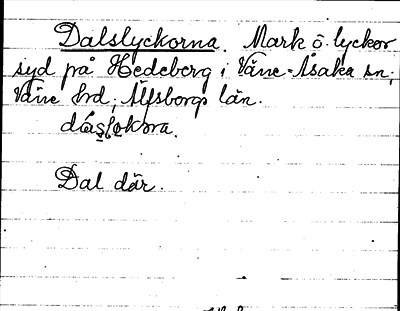 Dalslyckorna. Mark o. lyckor
syd på Hedeberg i Väne-Åsaka sn;
Väne hrd; Älfsborgs län.
Dal där.